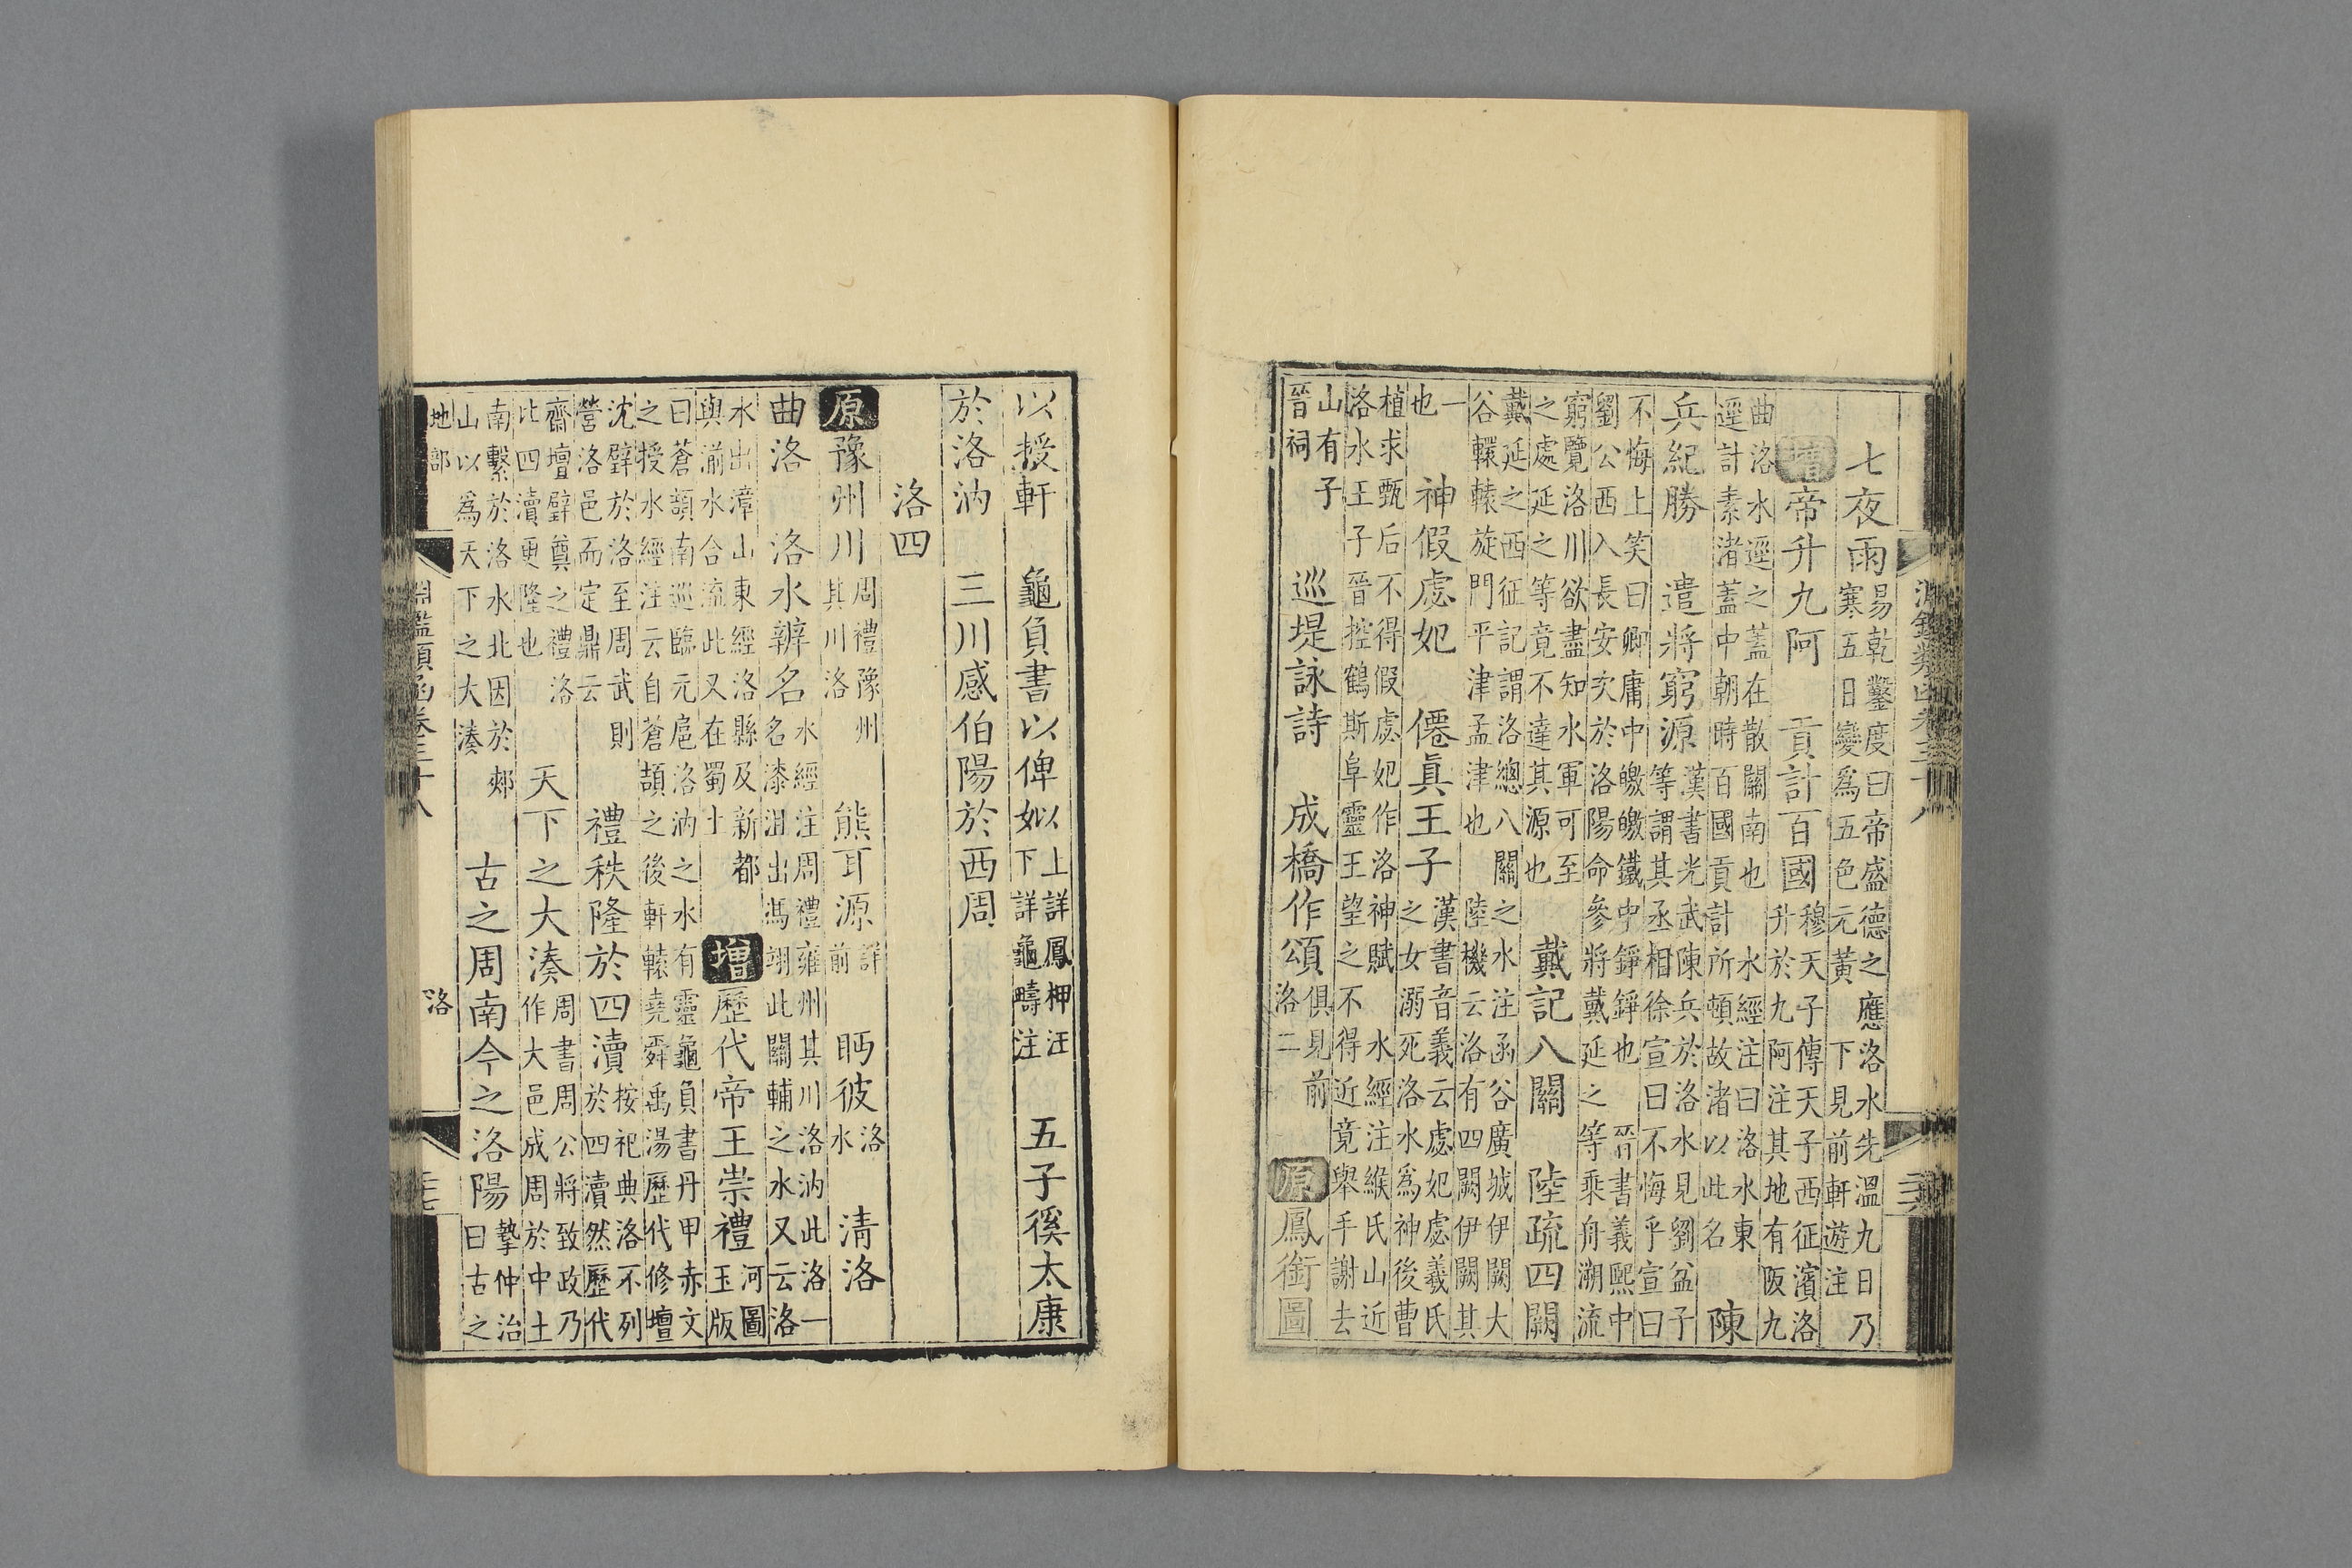 淵鑑類函卷三十八
七夜雨
易乾鑿度曰帝盛德之應洛水先溫九日乃
寒五日變爲五色元黃 下見前軒遊注
增 帝升九阿 貢計百國
穆天子傳天子西征濱洛
升於九阿注其地有阪九
曲洛水逕之蓋在散關南也 水經注曰洛水東
逕計素渚蓋中朝時百國貢計所頓故渚以此名
陳
兵紀勝 遣將窮源
漢書光武陳兵於洛水見劉盆子
等謂其丞相徐宣曰不悔乎宣曰
不悔上笑曰卿庸中皦皦鐵中錚錚也 晉書義熙中
劉公西入長安次於洛陽命參將戴延之等乘舟溯流
窮覽洛川欲盡知水軍可至
之處延之等竟不達其源也
戴記八關 陸疏四闕
戴延之西征記謂洛總八關之水注函谷廣城伊闕大
谷轘轅旋門平津孟津也 陸機云洛有四闕伊闕其
一
也
神假處妃 僊眞王子
漢書音義云處妃處羲氏
之女溺死洛水爲神後曹
植求甄后不得假處妃作洛神賦 水經注緱氏山近
洛水王子晉控鶴斯阜靈王望之不得近竟舉手謝去
山有子
晉祠
巡堤詠詩 成橋作頌
俱見前
洛二
原 鳳銜圖
以授軒 龜負書以俾姒
上詳鳳柙注
下詳龜疇注
五子徯太康
於洛汭 三川感伯陽於西周
洛四
原 豫州川
周禮豫州
其川洛
熊耳源
詳
前
眄彼
洛
水
淸洛
曲洛 洛水辨名
水經注周禮雍州其川洛汭此洛一
名漆沮出馮翊此關輔之水又云洛
水出漳山東經洛縣及新都
與湔水合流此又在蜀土
增 歷代帝王崇禮
河圖
玉版
曰蒼頡南巡臨元扈洛汭之水有靈龜負書丹甲赤文
之授水經注云自蒼頡之後軒轅堯舜禹湯歷代修壇
沈璧於洛至周武則
營洛邑而定鼎云
禮秩隆於四瀆
按祀典洛不列
於四瀆然歷代
齋壇璧奠之禮洛
比四瀆更隆也
天下之大湊
周書周公將致政乃
作大邑成周於中土
南繫於洛水北因於郟
山以爲天下之大湊
古之周南今之洛陽
摯仲治
曰古之
地部
淵鑑類函卷三十八
洛